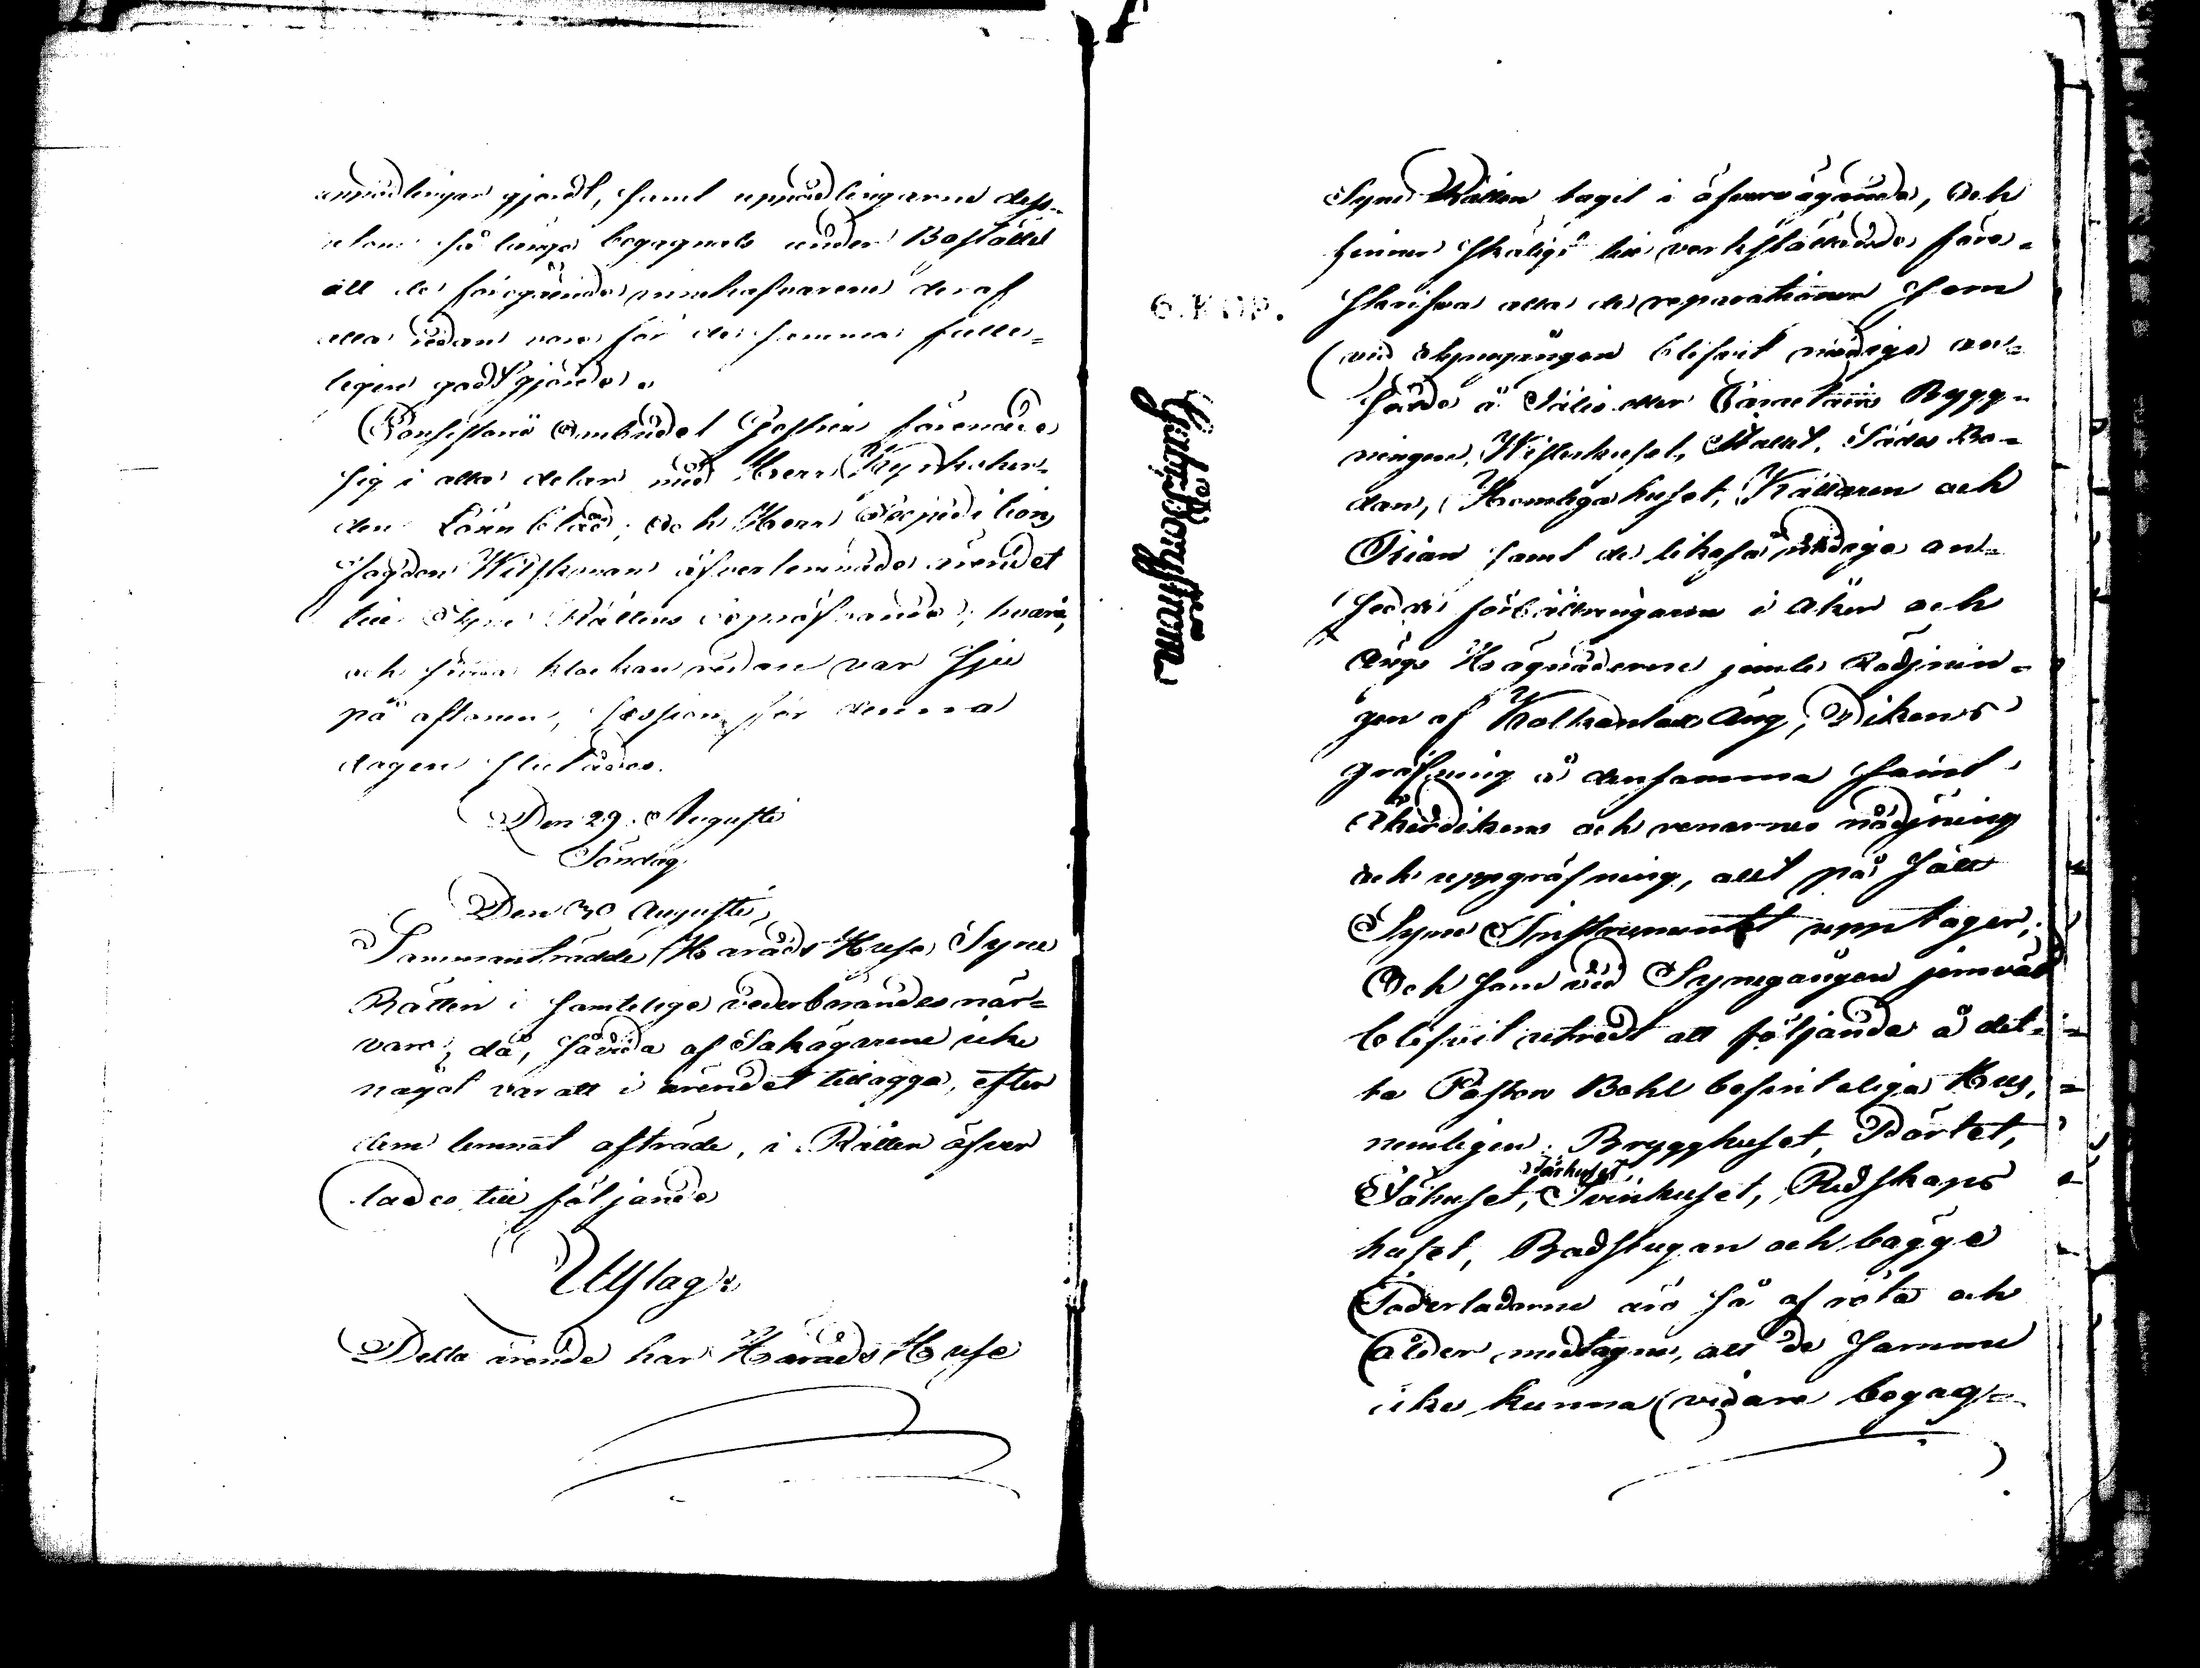 uppodlingar gjordt, samt uppodlingarne dess¬
utom så länge begagnats under Bostället
att de föregående innehafvarena deraf
alla redan voro för de samma fulle¬
ligen godtgjorda.
Consistorii Ombudet förenade
sig i alla delar med Herr Kyrkoher¬
den Lönnblad; och Herr Expeditions
Fogden Wilskman öfverlemnade ärendet
till Syne Rättens ompröfvande; hvarå,
och sedan klockan redan var sju
på aftonen, session för denna
dagen slutades.
Den 29. Augusti
Söndag
Den 30 Augusti,
Sammanträdde Härads Husse Syne
Rätten i samtelige vederbörandes när¬
varo, då, såvida af Sakägarene icke
något var att i ärendet tillägga, efter
dem lemnat afträde, i Rätten öfver
lades till följande
Utslag:
Detta ärende har Härads Husse
Syne Rätten tagit i öfvervägande, och
finner skäligt till verkställande före¬
skrifva alla de reparationer som
6 KOP.
vid Synegången blifvit nödige an¬
sedde å Salis eller Caracters Bygg¬
ningen, Wisthuset, Stallet, Sädes Bo¬
dan, Hemligahuset, Källaren och
Rian samt de likaså nödige an¬
sedde förbättringarna i åker och
Ängs Hägnaderne jemte Rödjnin¬
gen af Kolkanlax Äng, Dikens
gräfning å densamma samt
Åkerdikens och renarnes rödjning
och uppgräfning, allt på sätt
Syne Instrumentet upptager;
Och som vid Synegången jemväl
blifvit utredt att följande å det¬
ta Pastors Bohl befinteliga Hus,
nemligen: Brygghuset, Pörtet,
Fähuset, Fårhuset Svinhuset, Redskaps
huset, Badstugan och bägge
Foderladorne äro så af röta och
ålder medtagne, att de samme
icke kunna vidare begag¬